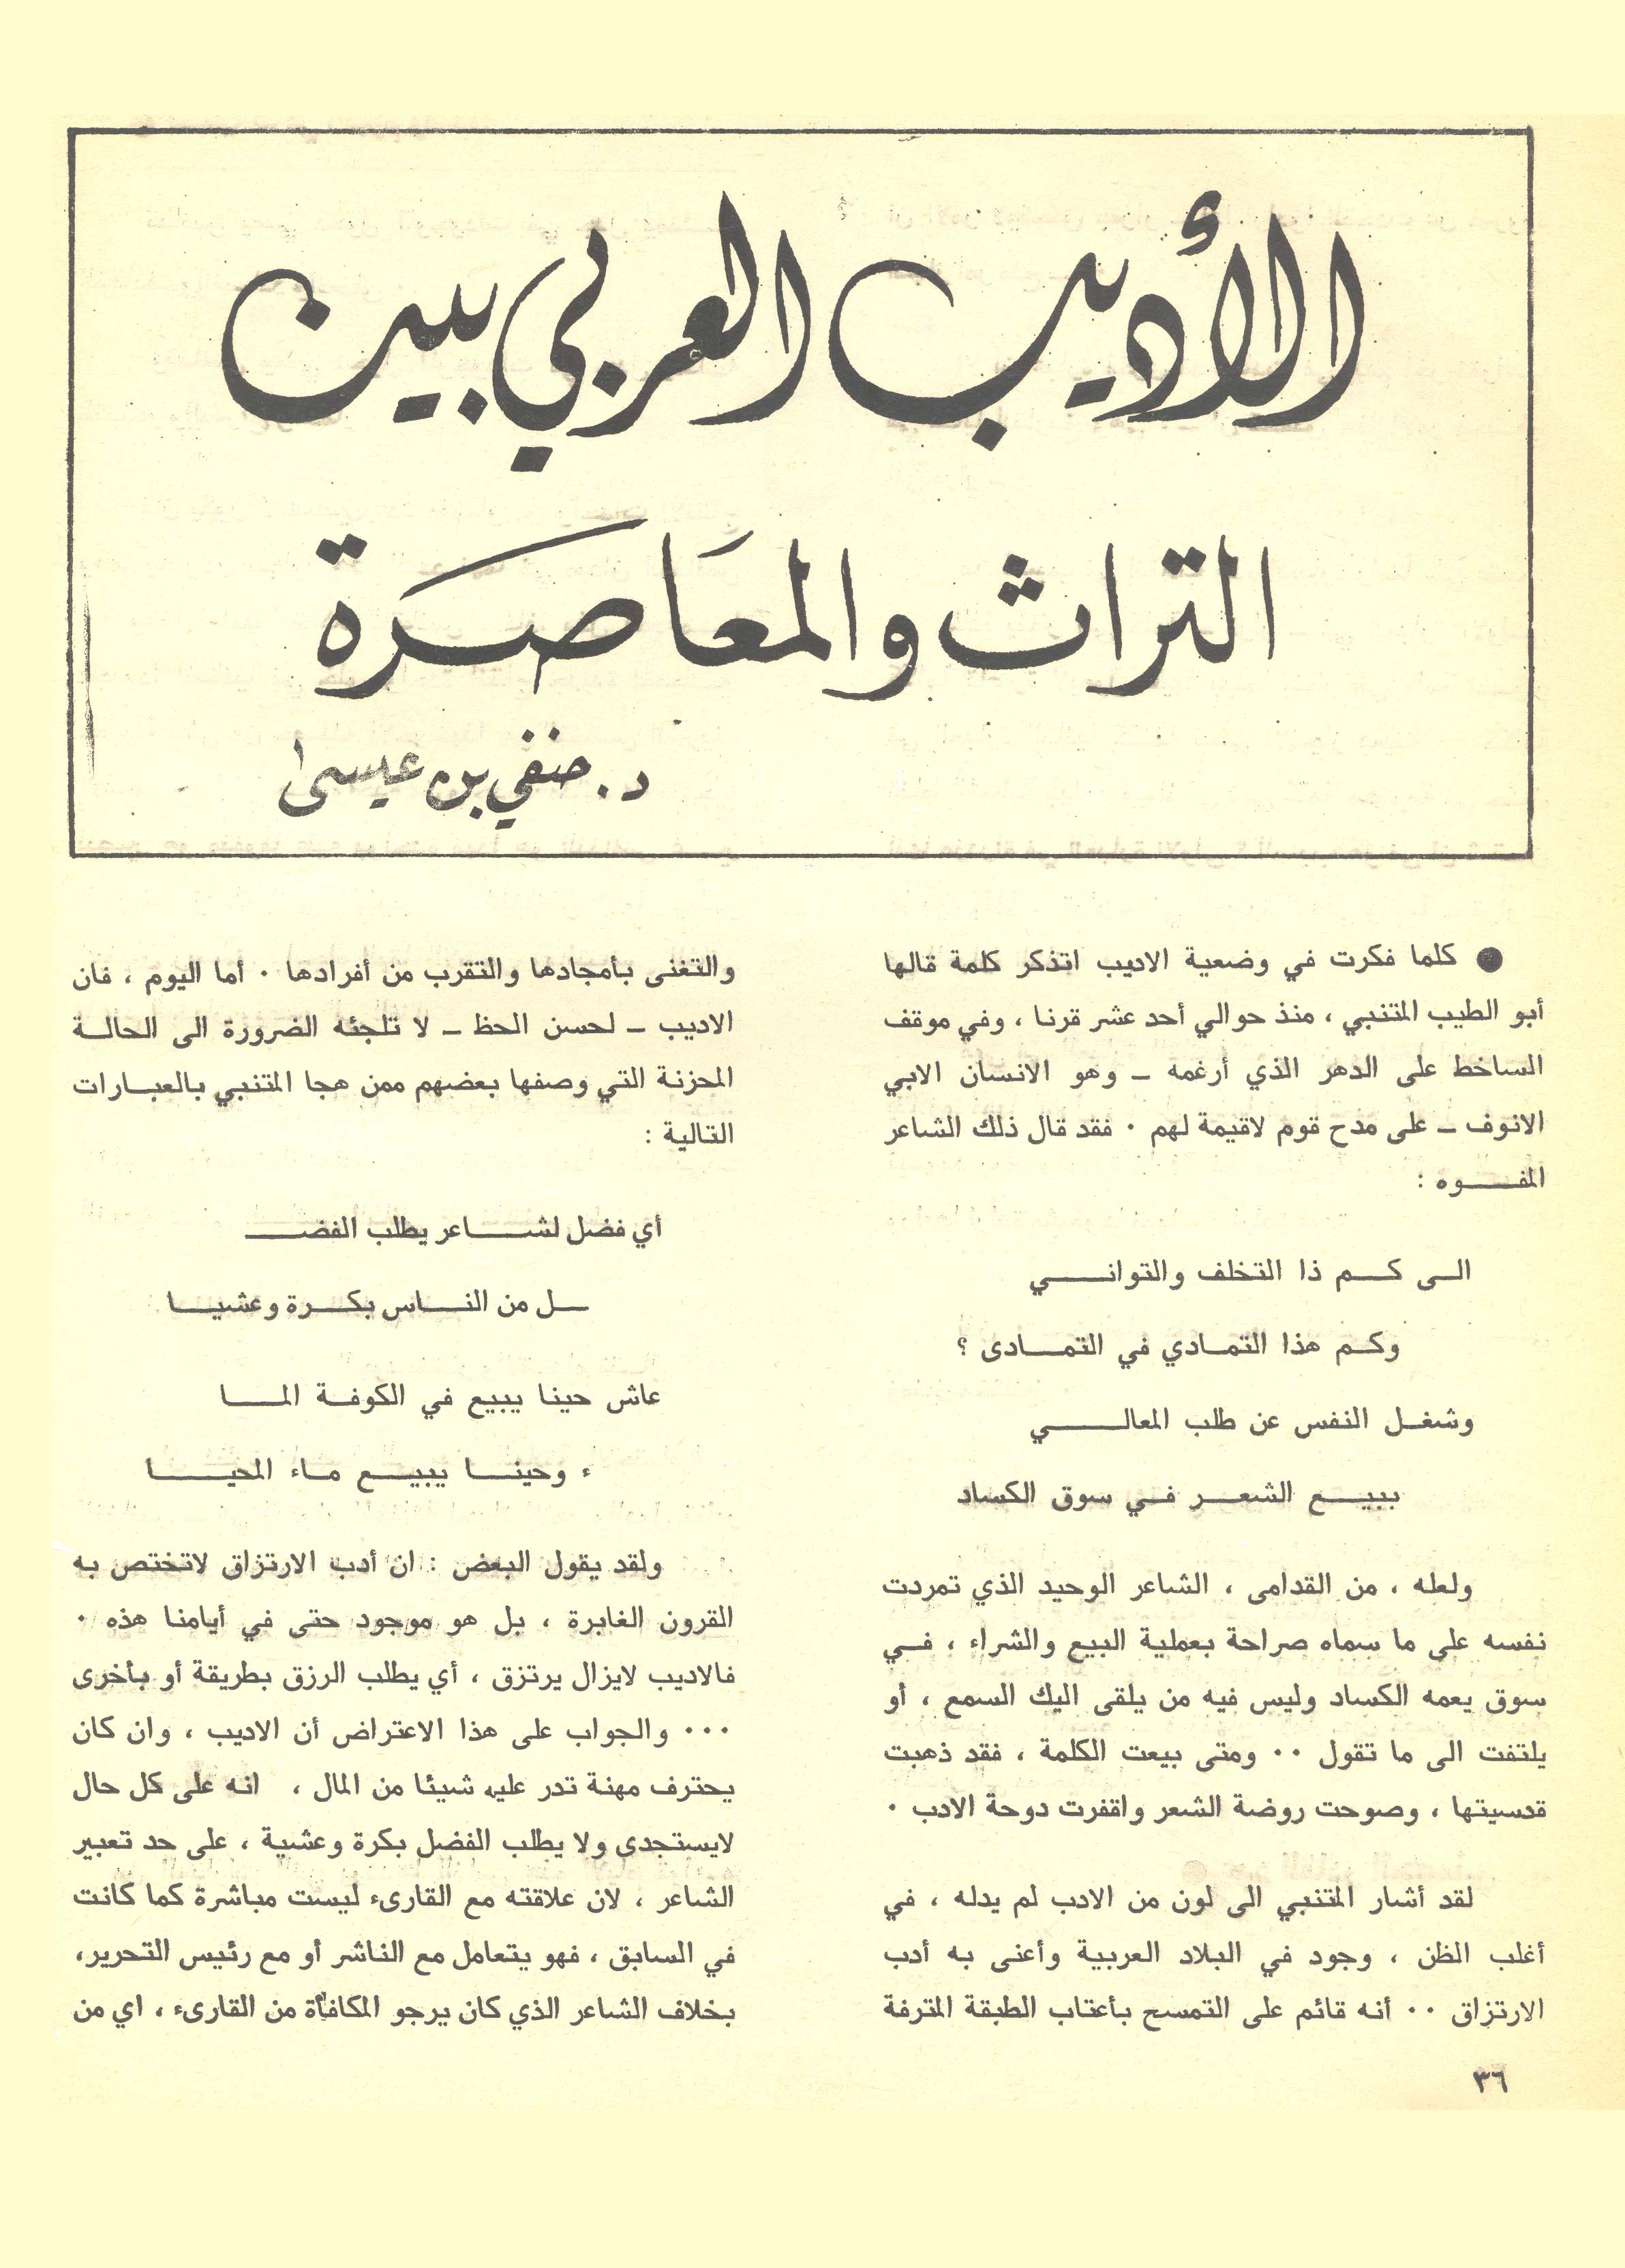 الأديب العربي بين
التراث والمعَاصَرة
د. حنفي بن عيسى
● كلما فكرت في وضعية الاديب اتذكر كلمة قالها
أبو الطيب المتنبي ، منذ حوالي أحد عشر قرنا ، وفي موقف
الساخط على الدهر الذي أرغمه ــ وهو الانسان الابي
الانوف ــ على مدح قوم لاقيمة لهم ٠ فقد قال ذلك الشاعر
المفـــــوه :
الــى كـــم ذا التخلف والتوانـــــي
وكــم هذا التمــادي في التمــــادى ؟
وشغــل النفس عن طلب المعالـــــي
ببيـــــع الشعـــر فــي سوق الكساد
ولعله ، من القدامى ، الشاعر الوحيد الذي تمردت
نفسه على ما سماه صراحة بعملية البيع والشراء ، فــي
سوق يعمه الكساد وليس فيه من يلقى اليك السمع ، أو
يلتفت الى ما تقول ٠٠ ومتى بيعت الكلمة ، فقد ذهبت
قدسيتها ، وصوحت روضة الشعر واقفرت دوحة الادب ٠
لقد أشار المتنبي الى لون من الادب لم يدله ، في
أغلب الظن ، وجود في البلاد العربية وأعنى به أدب
الارتزاق ٠٠ أنه قائم على التمسح بأعتاب الطبقة المترفة
والتغنى بأمجادها والتقرب من أفرادها ٠ أما اليوم ، فان
الاديب ــ لحسن الحظ ــ لا تلجئه الضرورة الى الحالــة
المحزنة التي وصفها بعضهم ممن هجا المتنبي بالعبــارات
التالية :
أي فضل لشـــــاعر يطلب الفضـــــ
ـــل من النـــاس بكـــرة وعشيــا
عاش حينا يبيع في الكوفــة المـــــا
ء وحينـــا يبيـــع مــاء المحيـــــا
ولقد يقول البعض : ان أدب الارتزاق لاتختص به
القرون الغابرة ، بل هو موجود حتى في أيامنا هذه ٠
فالاديب لايزال يرتزق ، أي يطلب الرزق بطريقة أو بأخرى
٠٠٠ والجواب على هذا الاعتراض أن الاديب ، وان كان
يحترف مهنة تدر عليه شيئا من المال ، انه على كل حال
لايستجدى ولا يطلب الفضل بكرة وعشية ، على حد تعبير
الشاعر ، لان علاقته مع القارىء ليست مباشرة كما كانت
في السابق ، فهو يتعامل مع الناشر أو مع رئيس التحرير،
بخلاف الشاعر الذي كان يرجو المكافأة من القارىء ، اي من
٣٦